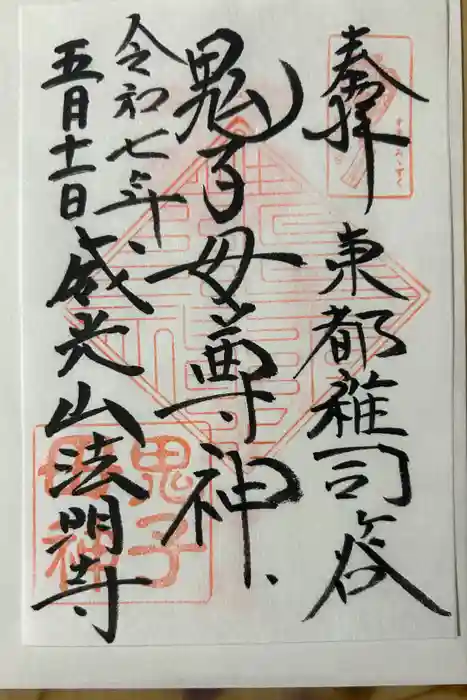 奉拝
東都雑司ヶ谷
鬼子母尊神
令和七年
五月十一日
威光山法明寺
鬼子
母神